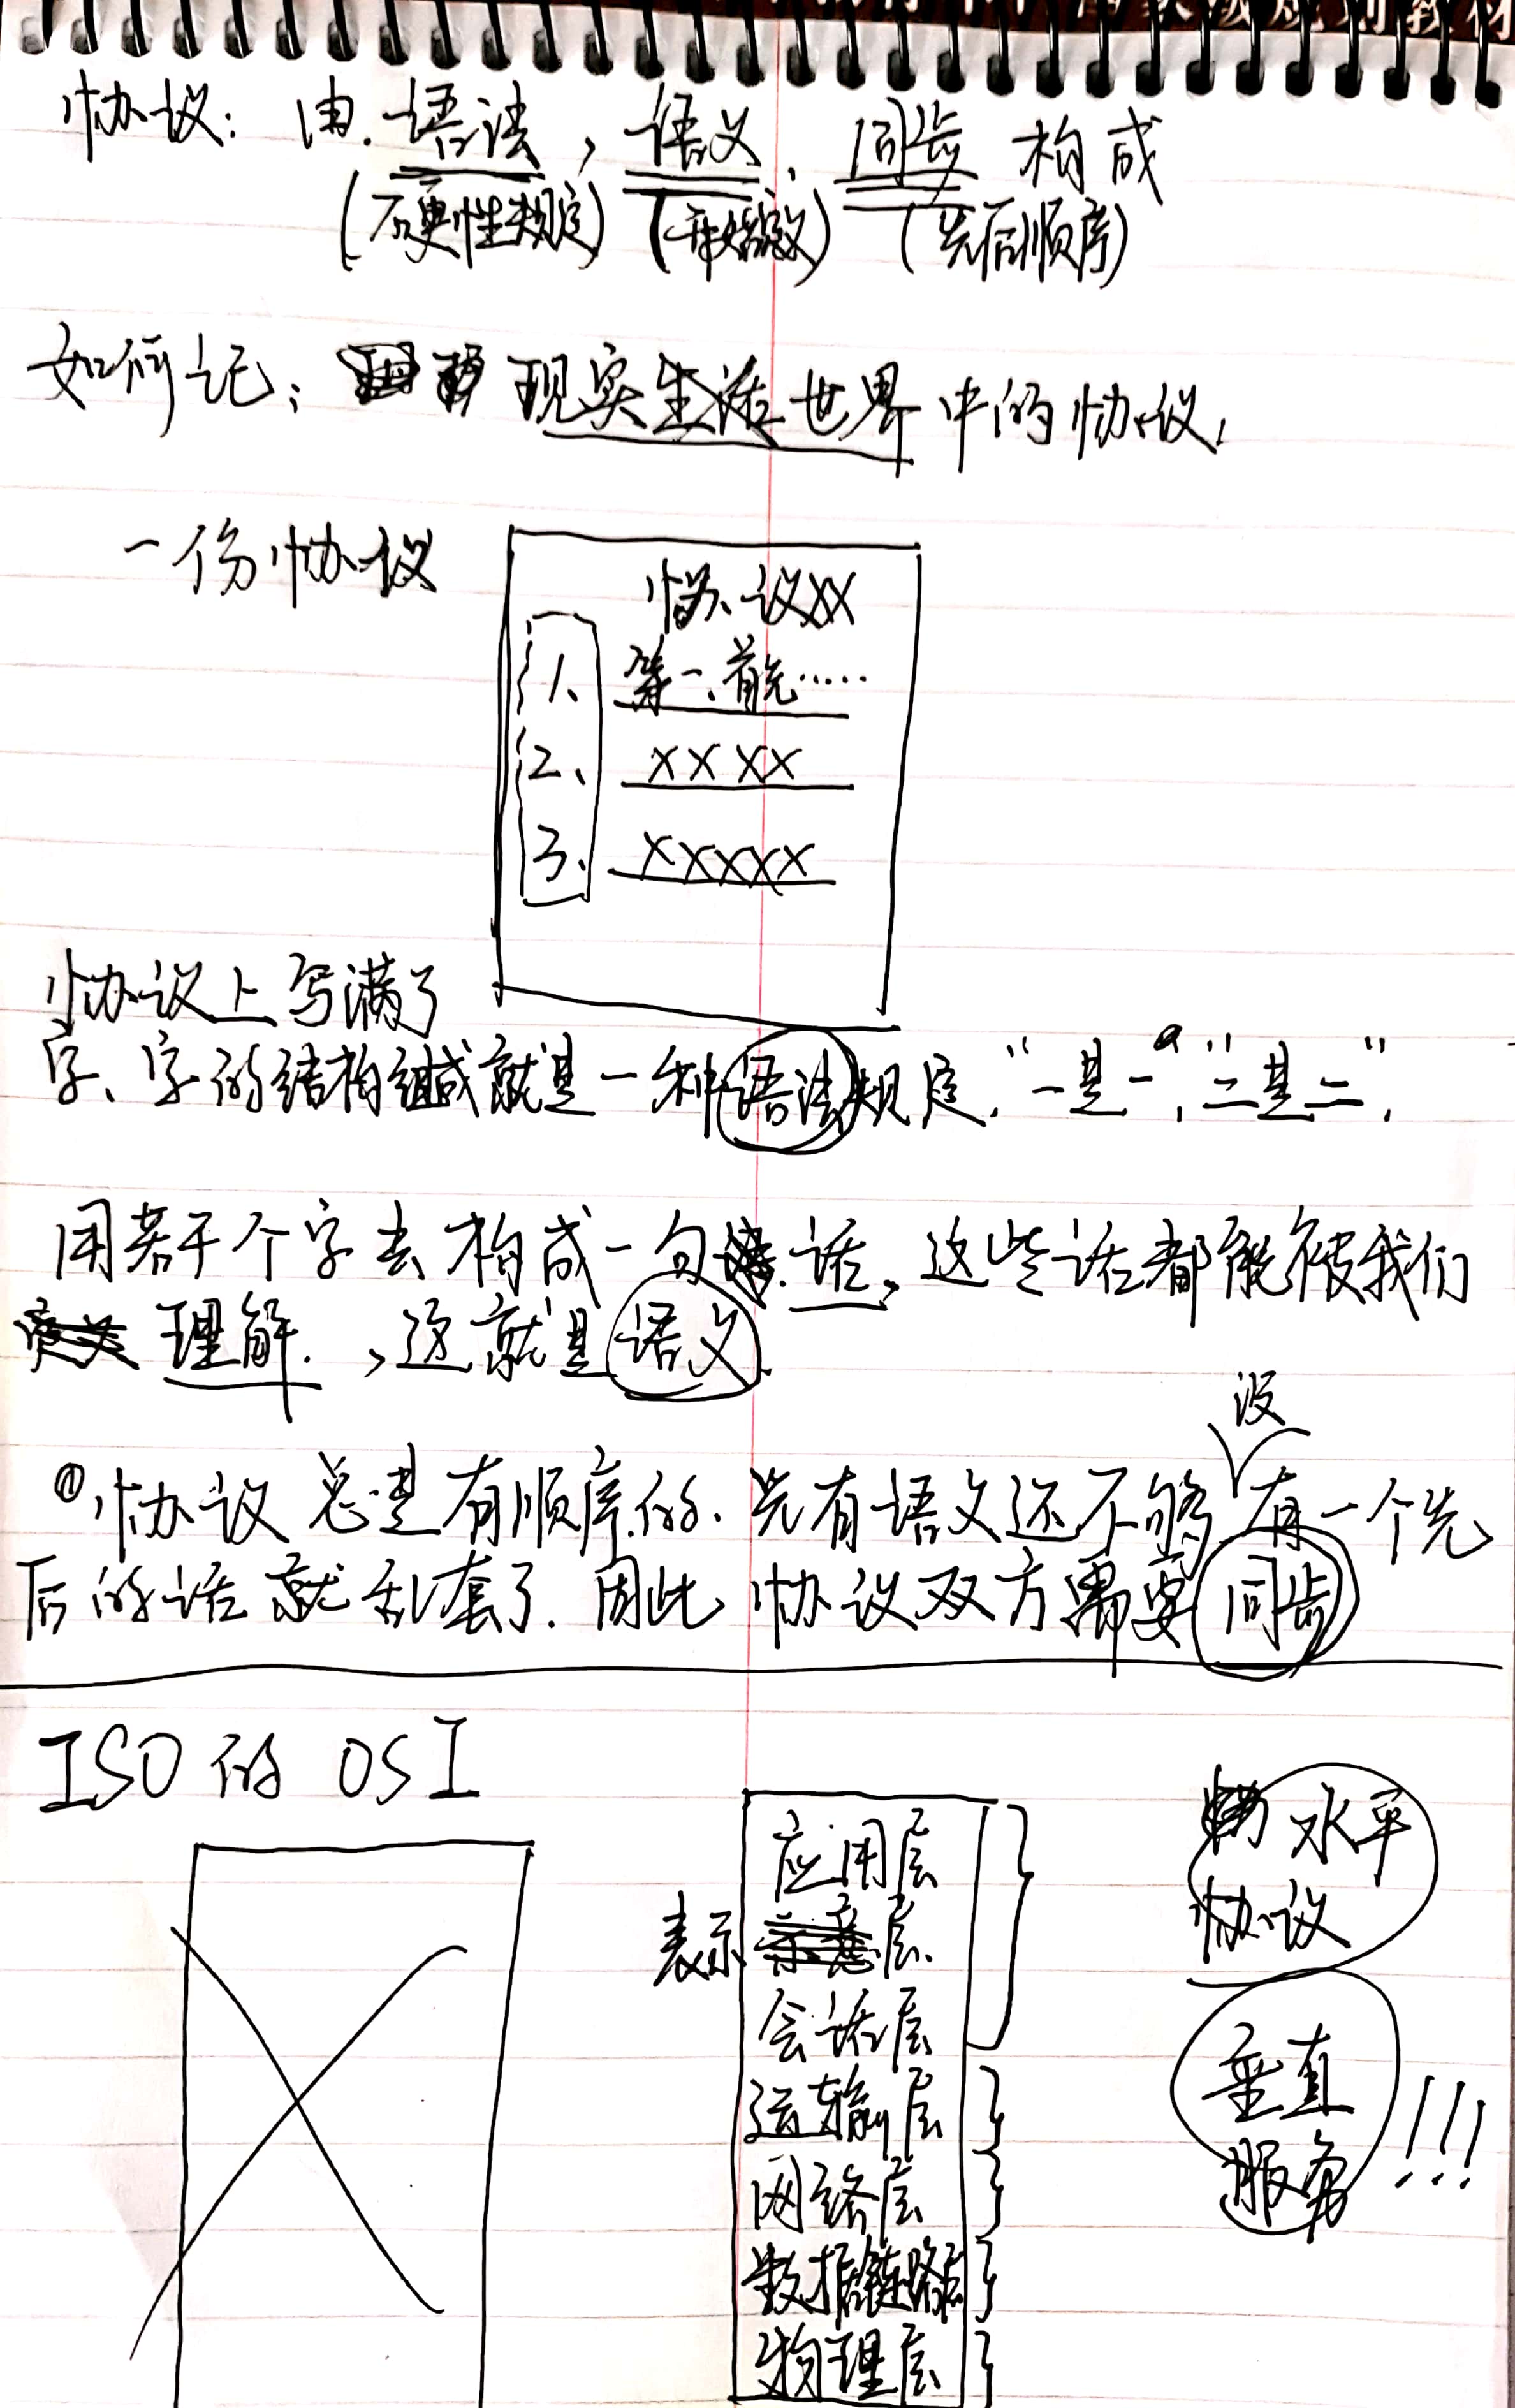 规划教材
协议：由.语法，语义、同步构成
(硬性规定) ( ) (先后顺序)
如何记：现实生活世界中的协议，
一份协议
协议XX
1、第一、首先……
2、XXXX
3、XXXXX
协议上写满了
字、字的结构组成就是一种语法规定，“一是一”，“二是二”，
用若干个字去构成一句话，这些话都能被我们
理解.，这就是语义
没
①协议总是有顺序的.光有语义还不够有一个先
后的话就乱套了.因此协议双方需要同步
ISO的OSI
应用层
表示层
会话层
运输层
网络层
数据链路层
物理层
水平
协议
垂直
服务!!!